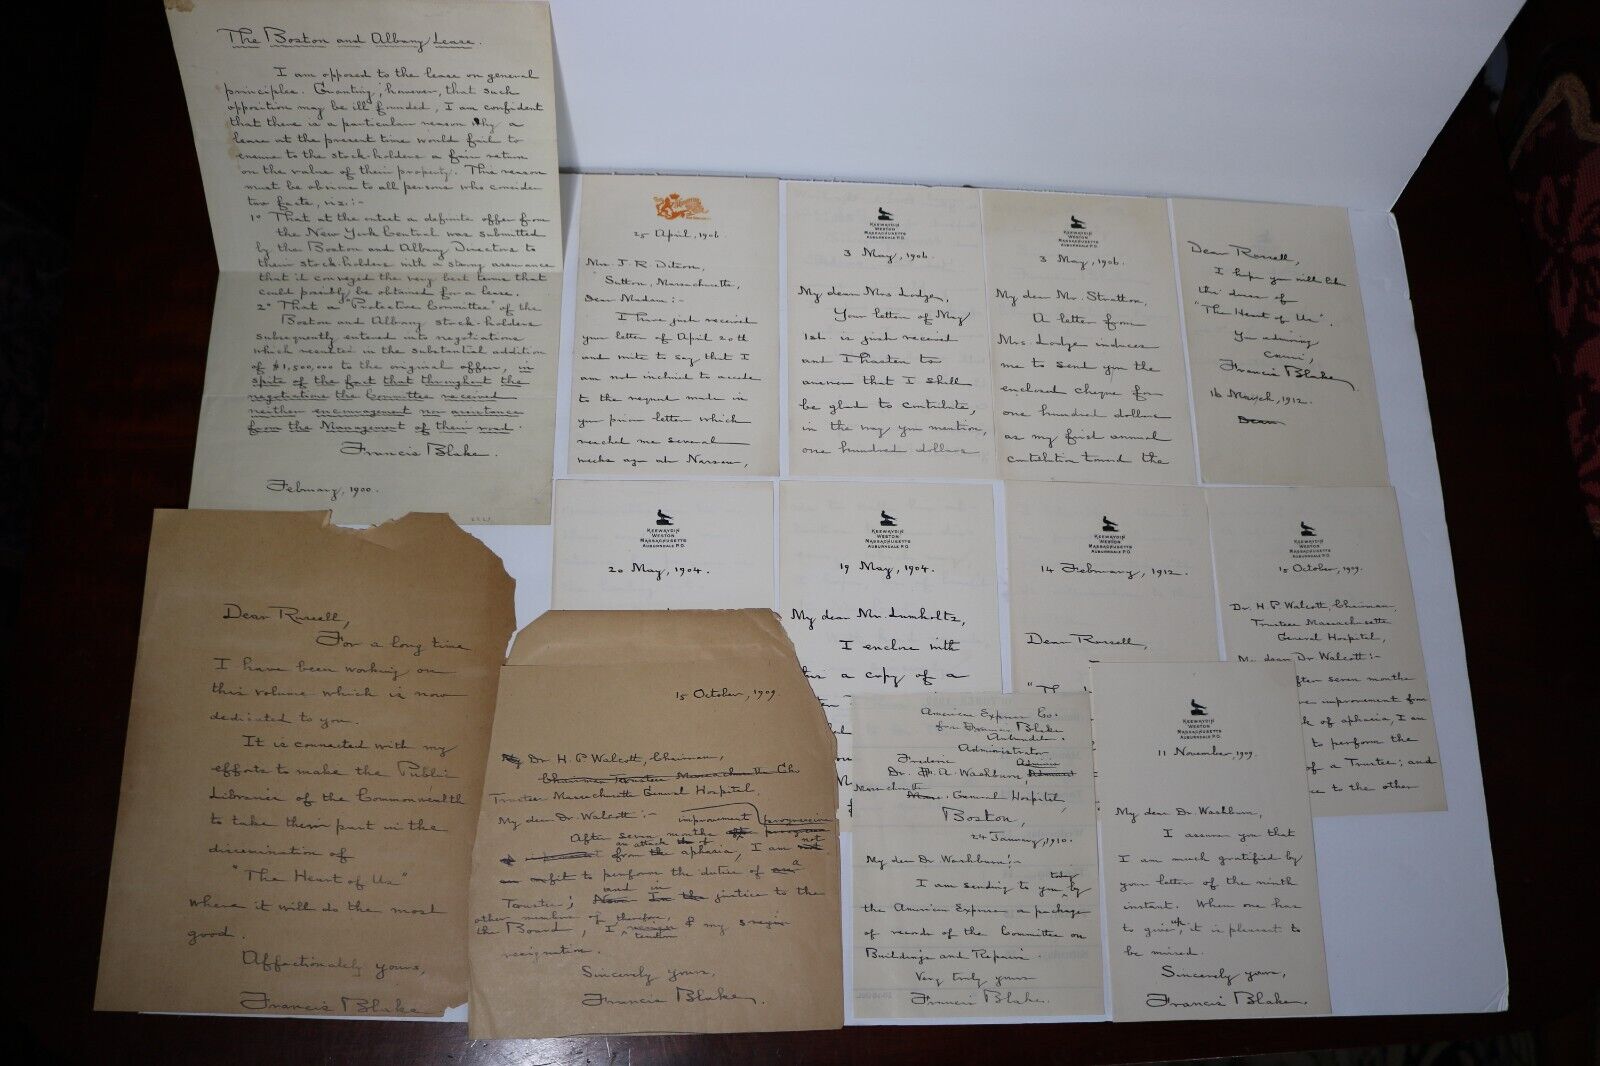 The Boston and Albany Lease.
I am opposed to the lease on general
principles. Granting, however, that such
opposition may be ill founded, I am confident
that there is a particular reason why a
lease at the present time would fail to
ensure to the stock-holders a fair return
on the value of their property. This reason
must be obvious to all persons who consider
two facts, viz:-
1° That at the outset a definite offer from
the New York Central was submitted
by the Boston and Albany Directors to
their stock-holders with a strong assurance
that it conveyed the very best terms that
could possibly be obtained for a lease.
2° That a "Protective Committee" of the
Boston and Albany stock-holders
subsequently entered into negotiations
which resulted in the substantial addition
of $1,500,000 to the original offer, in
spite of the fact that throughout the
negotiations the Committee received
neither encouragement nor assistance
from the Management of their road.
Francis Blake.
February, 1900.
25 April, 1906.
Mrs. J. R. Ditson,
Sutton, Massachusetts,
Dear Madam:-
I have just received
your letter of April 20th
and write to say that I
am not inclined to accede
to the request made in
your prior letter which
reached me several
weeks ago at Nassau,
KEEWAYDIN
WESTON
MASSACHUSETTS
AUBURNDALE P.O.
3 May, 1906.
My dear Mrs Lodge,
Your letter of May
1st is just received
and I hasten to
answer that I shall
be glad to contribute,
in the way you mention,
one hundred dollars
KEEWAYDIN
WESTON
MASSACHUSETTS
AUBURNDALE P.O.
3 May, 1906.
My dear Mr. Stratton,
A letter from
Mrs. Lodge induces
me to send you the
enclosed cheque for
one hundred dollars
as my first annual
contribution toward the
Dear Russell,
I hope you will like
this dress of
"The Heart of Us".
Your admiring
cousin,
Francis Blake
16 March, 1912.
KEEWAYDIN
WESTON
MASSACHUSETTS
AUBURNDALE P.O.
20 May, 1904.
KEEWAYDIN
WESTON
MASSACHUSETTS
AUBURNDALE P.O.
19 May, 1904.
My dear Mr. Lumholtz,
I enclose with
a copy of a
KEEWAYDIN
WESTON
MASSACHUSETTS
AUBURNDALE P.O.
14 February, 1912.
Dear Russell,
KEEWAYDIN
WESTON
MASSACHUSETTS
AUBURNDALE P.O.
15 October, 1909.
Dr. H. P. Walcott, Chairman,
Trustees Massachusetts
General Hospital,
My dear Dr. Walcott:-
seven months
improvement from
of aphasia, I am
to perform the
of a Trustee; and
to the other
Dear Russell,
For a long time
I have been working on
this volume which is now
dedicated to you.
It is connected with my
efforts to make the Public
Libraries of the Commonwealth
to take their part in the
dissemination of
"The Heart of Us"
where it will do the most
good.
Affectionately yours,
Francis Blake
15 October, 1909.
My Dr. H. P. Walcott, Chairman,
Chairman Trustees Massachusetts
Trustees Massachusetts General Hospital,
My dear Dr. Walcott:- improvement progressive
After seven months
an attack of
from the aphasia, I am not
fit to perform the duties of a
Trustee; and in justice to the
other members of therefore,
the Board, I tender my
resignation.
Sincerely yours,
Francis Blake.
American Express Co.
from Francis Blake
Auburndale.
Administrator
Frederic
Dr. A. Washburn,
Massachusetts General Hospital,
Boston,
24 January, 1910.
My dear Dr Washburn:-
I am sending to you today by
the American Express a package
of records of the Committee on
Buildings and Repairs.
Very truly yours
Francis Blake.
KEEWAYDIN
WESTON
MASSACHUSETTS
AUBURNDALE P.O.
11 November, 1909.
My dear Dr. Washburn,
I assure you that
I am much gratified by
your letter of the ninth
instant. When one has
to give up, it is pleasant to
be missed.
Sincerely yours,
Francis Blake.